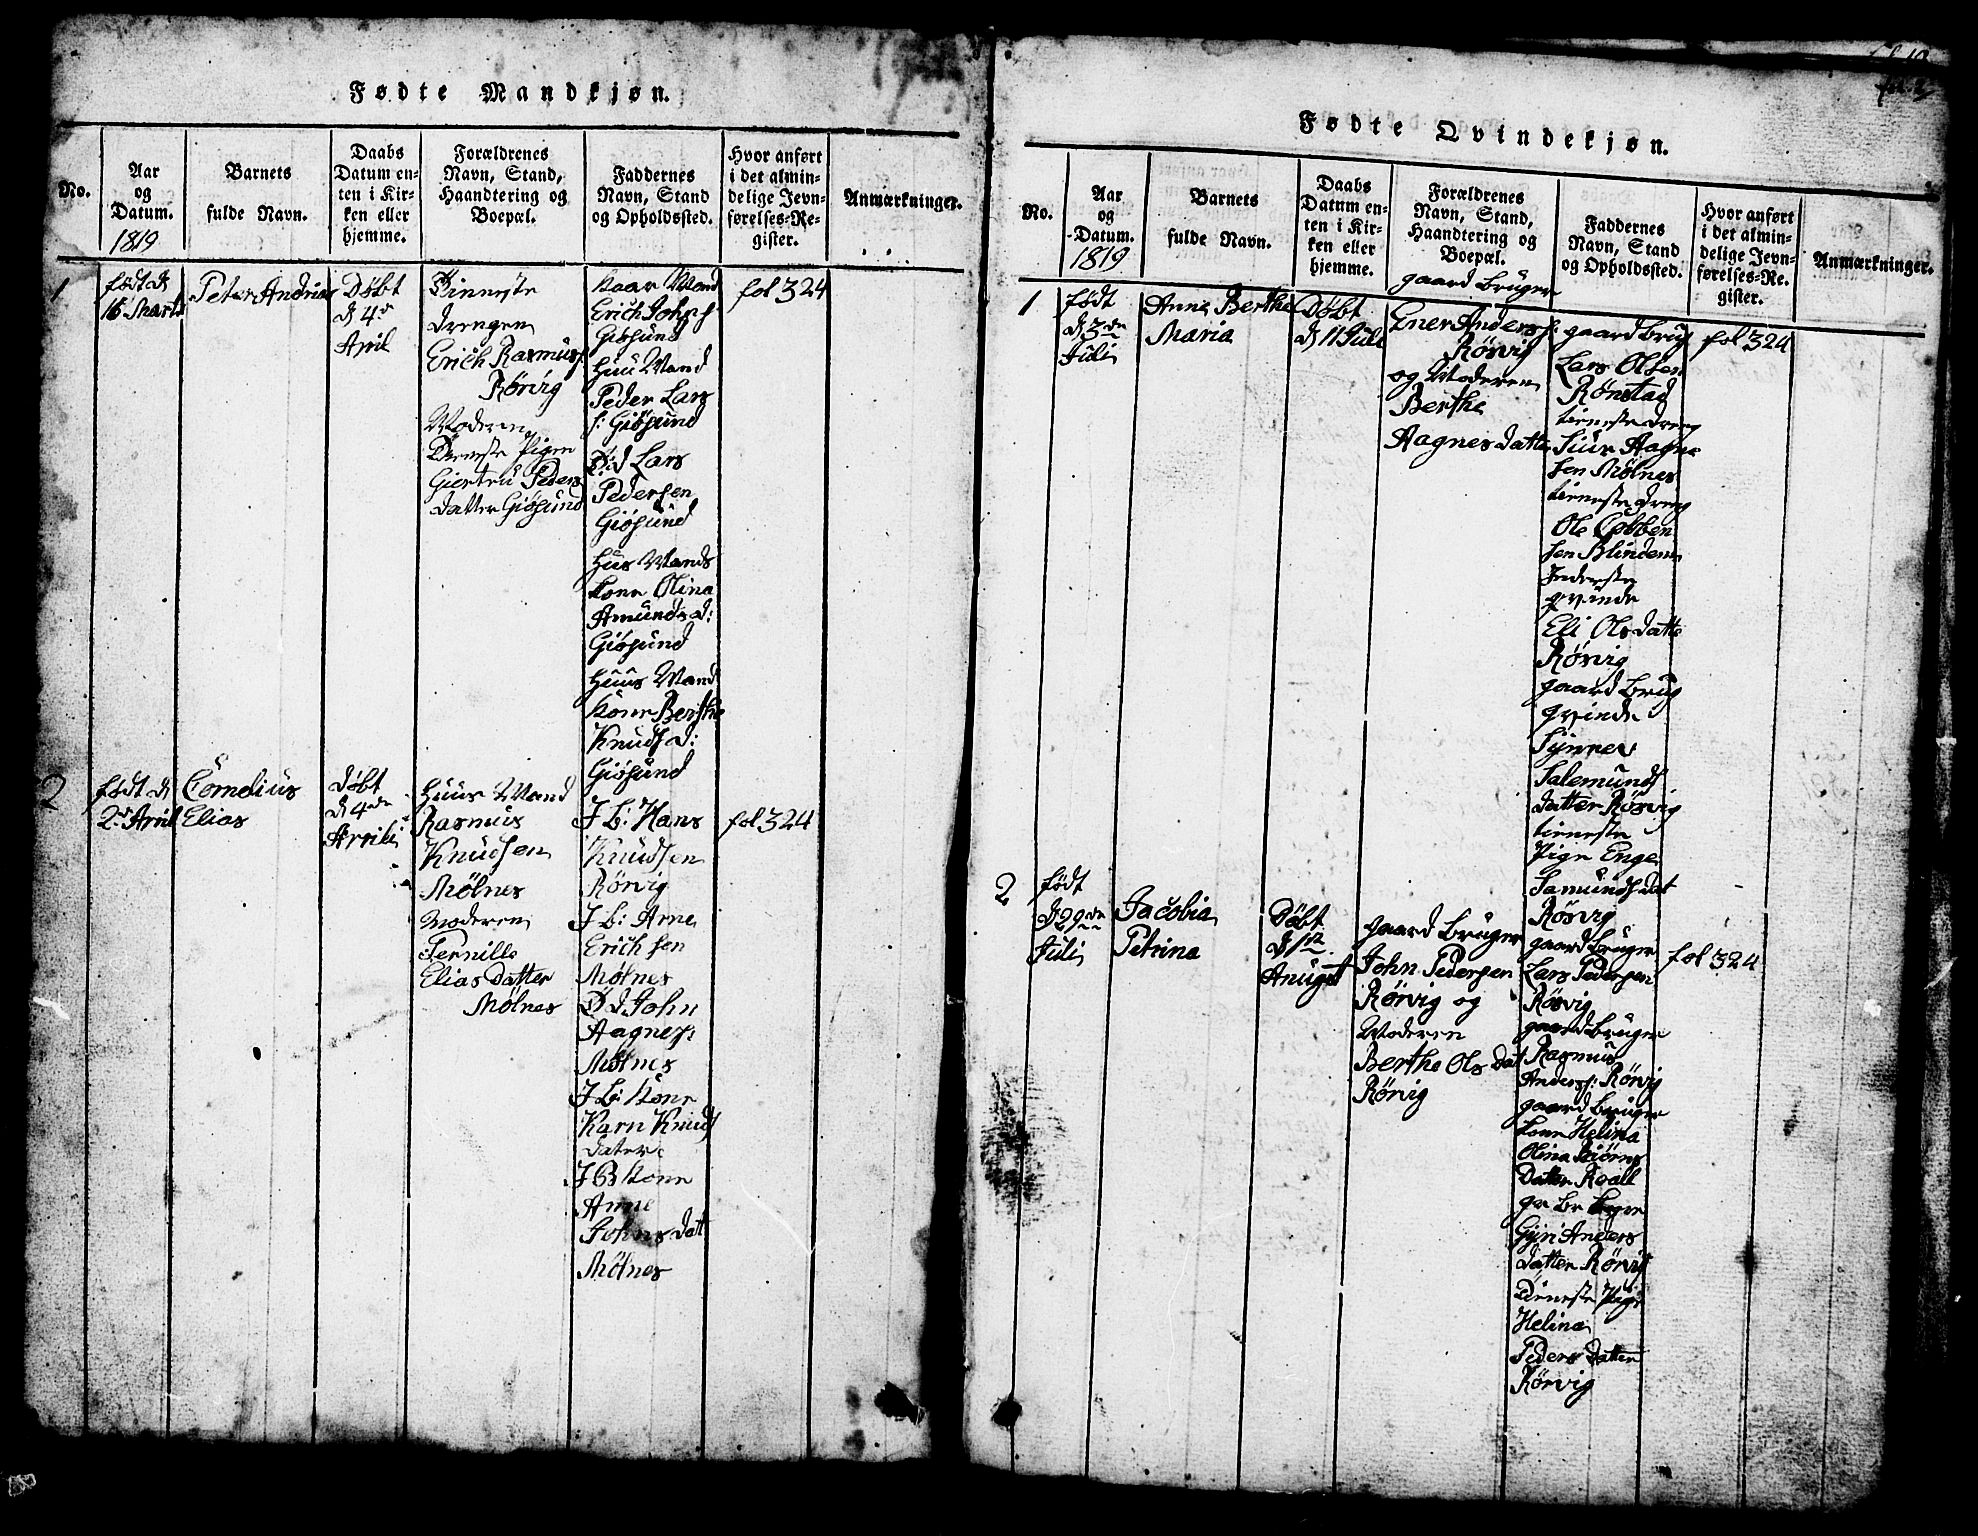 Fødte Mandkjøn.
No.
Aar
og
Datum.
1819
Barnets
fulde Navn.
Daabs
Datum en-
ten i Kir-
ken eller
hjemme.
Forældrenes
Navn, Stand,
Haandtering og
Boepæl.
Faddernes
Navn, Stand
og Opholdssted.
Hvor anført
i det almin-
delige Jevn-
førelses-Re-
gister.
Anmærkninger.
1
født d
16 Marts
Peter Andrias
Døbt
d 4de
April
Tieneste
drengen
Erich Rasmuss
Rørvig
Moderen
Tieneste Pigen
Giertru Peders
datter Giøsund
Erich Johns
Giøsund
Huus Mand
Peder Lars
s: Giøsund
Lars
Pedersen
Giøsund
Huus Mands
kone Olina
Amunds d:
Giøsund
Huus Mands
kone Berthe
Knuds d:
Giøsund
fol 324
2
født d
2de April
Cornelius
Elias
døbt
d 4de
Aprili
Huus Mand
Rasmus
Knudsen
Mölnes
moderen
Pernille
Elias datter
Mölnes
J b: Hans
Knudsen
Rörvig
J b: Arne
Erichsen
Mölnes
John
Aagnes:
Mölnes
J b: kone
Karn Knuds
dater
J B kone
Anne
Johns dat
Mölnes
fol 324
Fødte Qvindekjøn.
No.
Aar
og
Datum.
1819
Barnets
fulde Navn.
Daabs
Datum en-
ten i Kir-
ken eller
hjemme.
Forældrenes
Navn, Stand,
Haandtering og
Boepæl.
Faddernes
Navn, Stand
og Opholdssted.
Hvor anført
i det almin-
delige Jevn-
førelses-Re-
gister.
Anmærkninger.
1
født
d 3de
Juli
Anne Berthe
Maria
Døbt
d 11 Juli
gaard bruger
Ener Anders s:
Rörvig
og Moderen
Berthe
Aagnes datter
gaard brug
Lars Olsen
Rønstad
tieneste dreng
Siur Aagne
sen Mölnes
tieneste dreng
Ole
sen Blindem
Inderste
qvinde
Eli Ols datte
Rörvig
gaard brug
qvinde
Synnev
Salemunds
datter Rörvig
tieneste
Pige Enge
Samunds dat
Rörvig
fol 324
2
født
d 29de
Juli
Jacobia
Petrina
Døbt
d 1te
Auugst
gaard bruger
John Pedersen
Rörvig og
Moderen
Berthe Ols dat
Rörvig
gaard bruger
Lars Pedersen
Rörvig
gaard bruger
Rasmus
Anders s: Rörvig
gaard bruger
kone Helina
Olina Biörns
Datter Roald
gr br kone
Gyri Anders
datter Rörvig
Tieneste Pige
Helina
Peders datter
Rörvig
fol 324